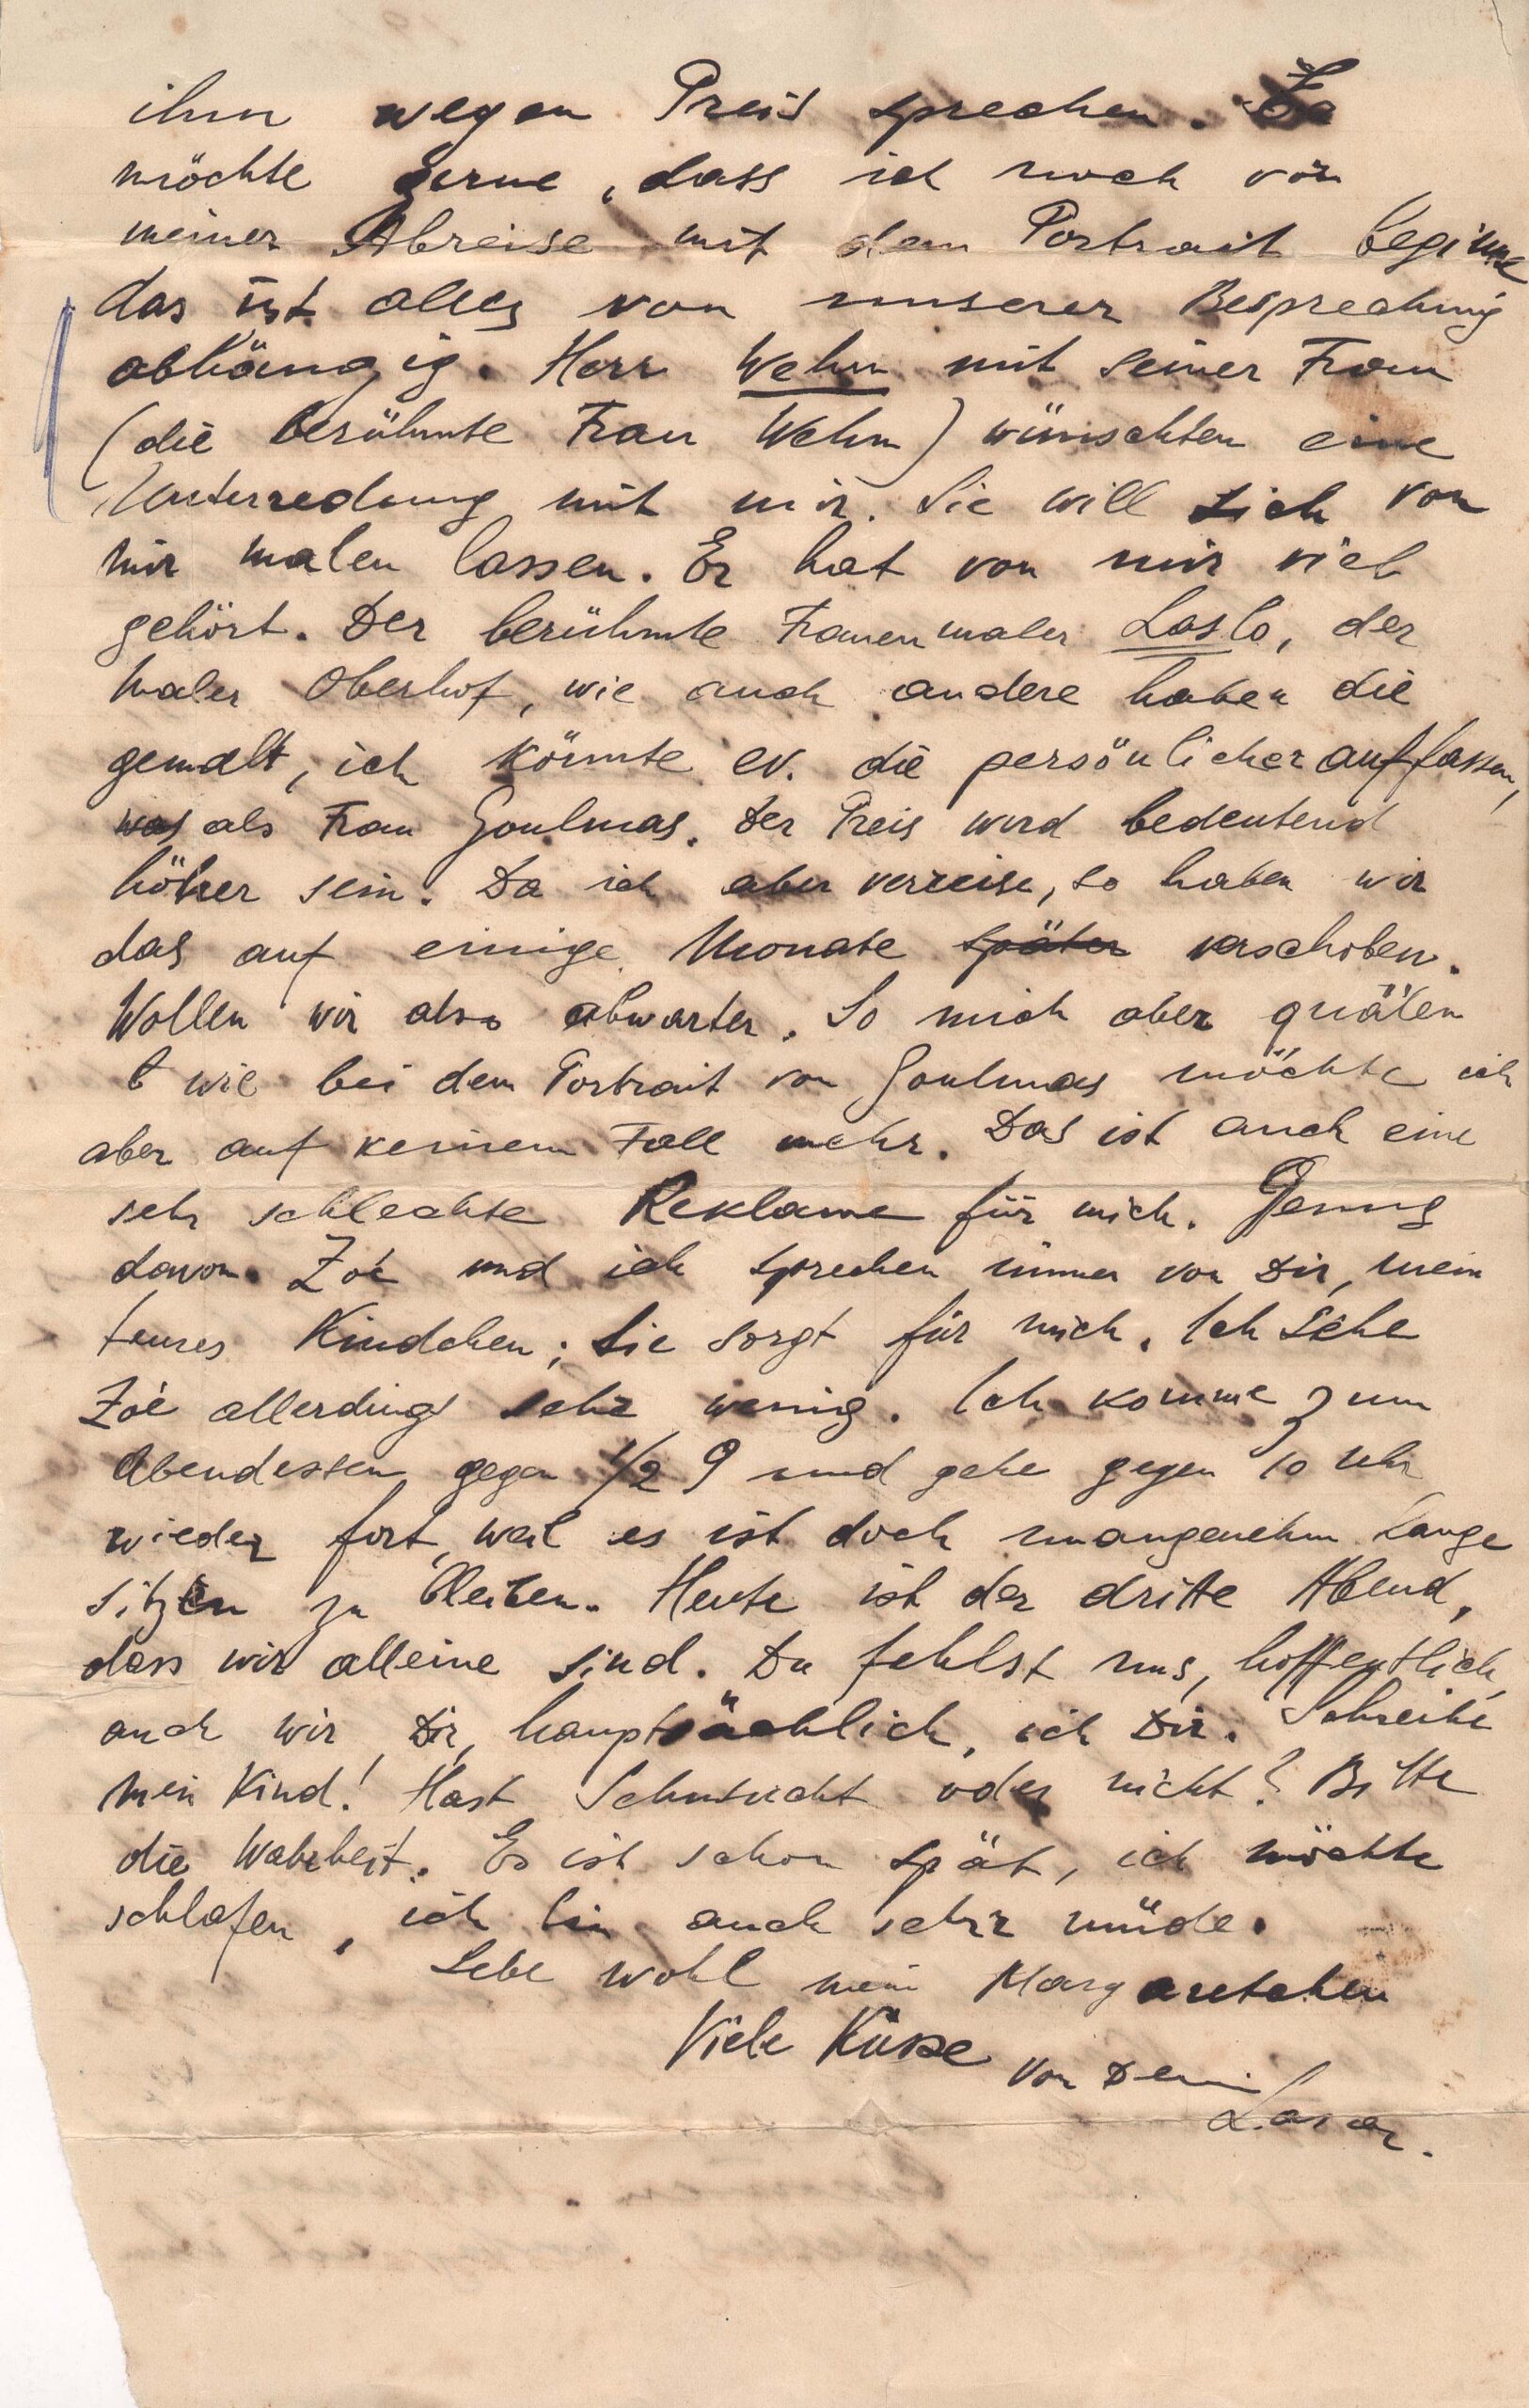 ihm wegen Preis sprechen. Er
möchte gerne, dass ich noch vor
meiner Abreise mit dem Portrait beginne
das ist alles von unserer Besprechung
abhängig. Herr Wehm mit seiner Frau
(die berühmte Frau Wehm) wünschten eine
Unterredung mit mir. Sie will sich von
mir malen lassen. Er hat von mir viel
gehört. Der berühmte Frauenmaler Laslo, der
Maler Oberhof, wie auch andere haben die
gemalt, ich könnte ev. die persönlicher auffassen,
was als Frau Goulmas. Der Preis wird bedeutend
höher sein. Da ich aber verreise, so haben wir
das auf einige Monate später verschoben.
Wollen wir also abwarten. So mich aber quälen
wie bei dem Portrait von Goulmas möchte ich
aber auf keinem Fall mehr. Das ist auch eine
sehr schlechte Reklame für mich. Genug
davon. Zoé und ich sprechen immer von Dir, mein
teures Kindchen; Sie sorgt für mich. Ich sehe
Zoé allerdings sehr wenig. Ich komme zum
Abendessen gegen 1/2 9 und gehe gegen 10 Uhr
wieder fort, weil es ist doch unangenehm lange
sitzen zu bleiben. Heute ist der dritte Abend,
dass wir alleine sind. Du fehlst uns, hoffentlich
auch wir Dir, hauptsächlich, ich Dir. Schreibe
mein Kind! Hast Sehnsucht oder nicht? Bitte
die Wahrheit. Es ist schon spät, ich möchte
schlafen, ich bin auch sehr müde.
Lebe wohl mein Margaretchen
Viele Küsse von Dein
Lasar.